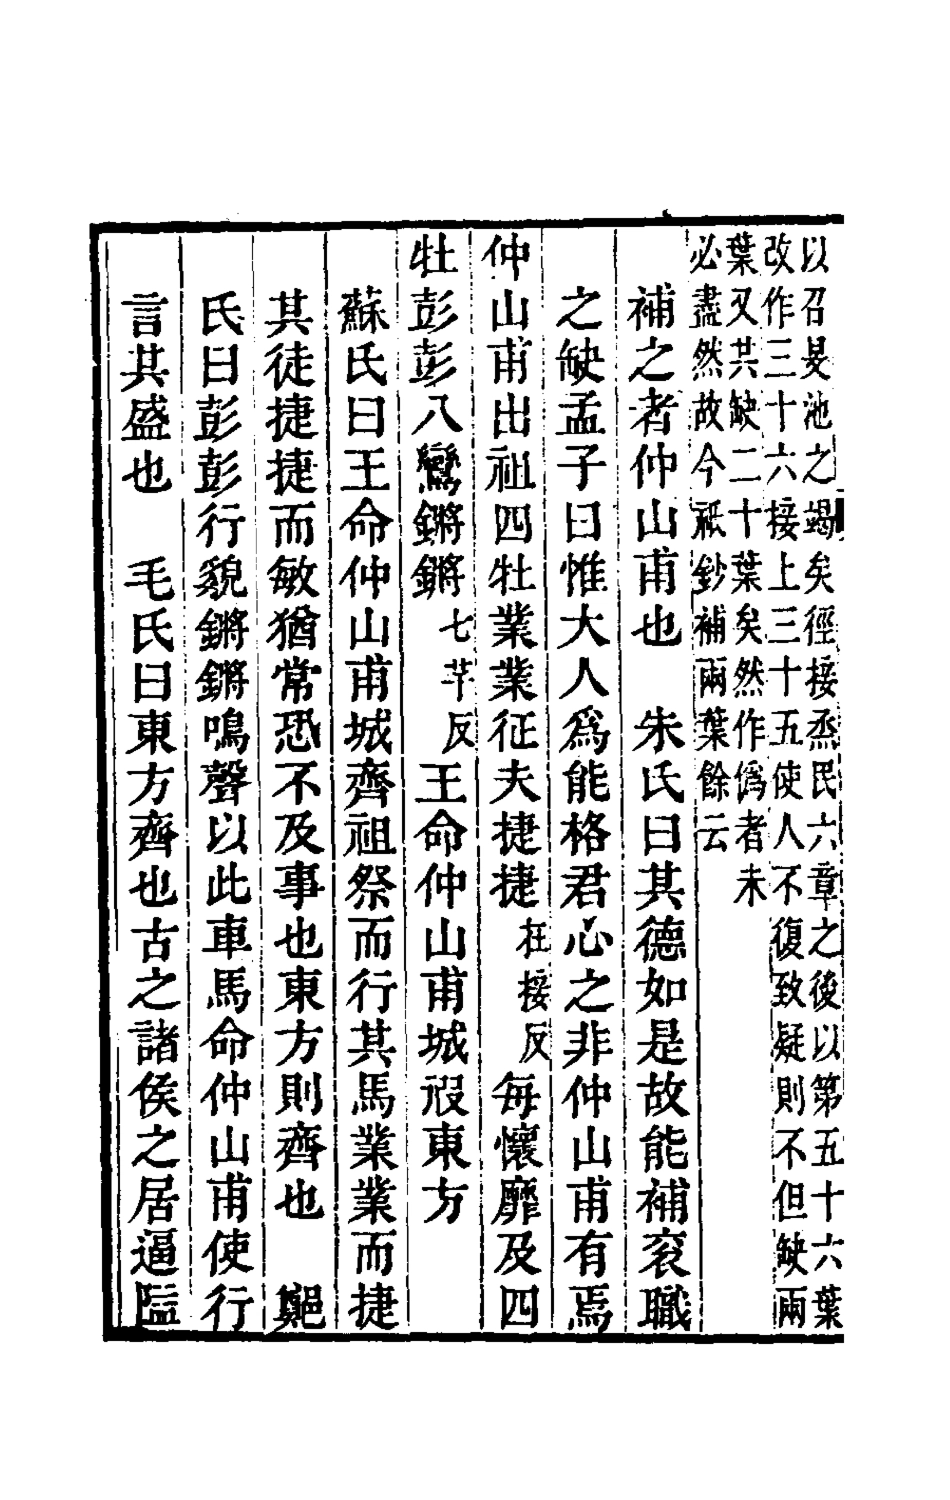 以召旻池之竭矣徑接烝民六章之後以第五十六葉
改作三十六接上三十五使人不復致疑則不但缺兩
葉又共缺二十葉矣然作僞者未
必盡然故今祇鈔補兩葉餘云
補之者仲山甫也　朱氏曰其德如是故能補袞職
之缺孟子曰惟大人爲能格君心之非仲山甫有焉
仲山甫出祖四牡業業征夫捷捷在接反每懷靡及四
牡彭彭八鸞鏘鏘七芊反王命仲山甫城彼東方
蘇氏曰王命仲山甫城齊祖祭而行其馬業業而捷
其徒捷捷而敏猶常恐不及事也東方則齊也　鄭
氏曰彭彭行貌鏘鏘鳴聲以此車馬命仲山甫使行
言其盛也　毛氏曰東方齊也古之諸侯之居逼隘